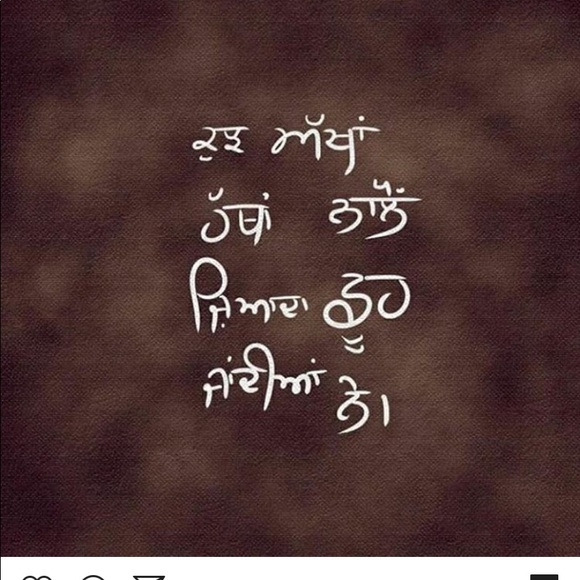 ਕੁਝ ਅੱਖਾਂ
ਹੱਥਾਂ ਨਾਲੋਂ
ਜ਼ਿਆਦਾ ਛੂਹ
ਜਾਂਦੀਆਂ ਨੇ।